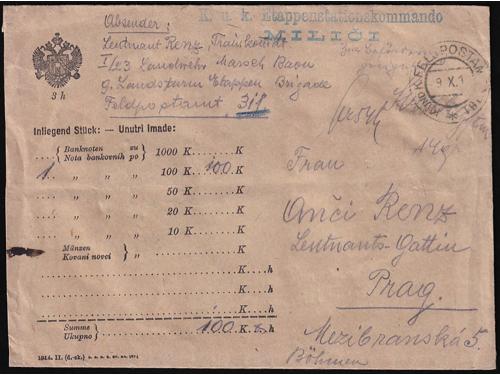 Absender:
Leutnant Renz,
I/103 Landwehr Marsch Baon
9. Landsturm Etappen Brigade
Feldpostamt 311
K. u. k. Etappenstationskommando
MILIČI
K.u.K. FELDPOSTAMT
9. X. 1
3 h
Inliegend Stück: — Unutri imade:
Banknoten zu
Nota bankovnih po
1000 K K
1 „ „ 100 K 100 K
„ „ 50 K K
„ „ 20 K K
„ „ 10 K K
Münzen
Kovani novci
„ K h
K h
K h
Summe
Ukupno
100 K h
1914. II. (d.-sk.)
Frau
Anči Renz
Leutnants-Gattin
Prag.
Mezibranská 5
Böhmen